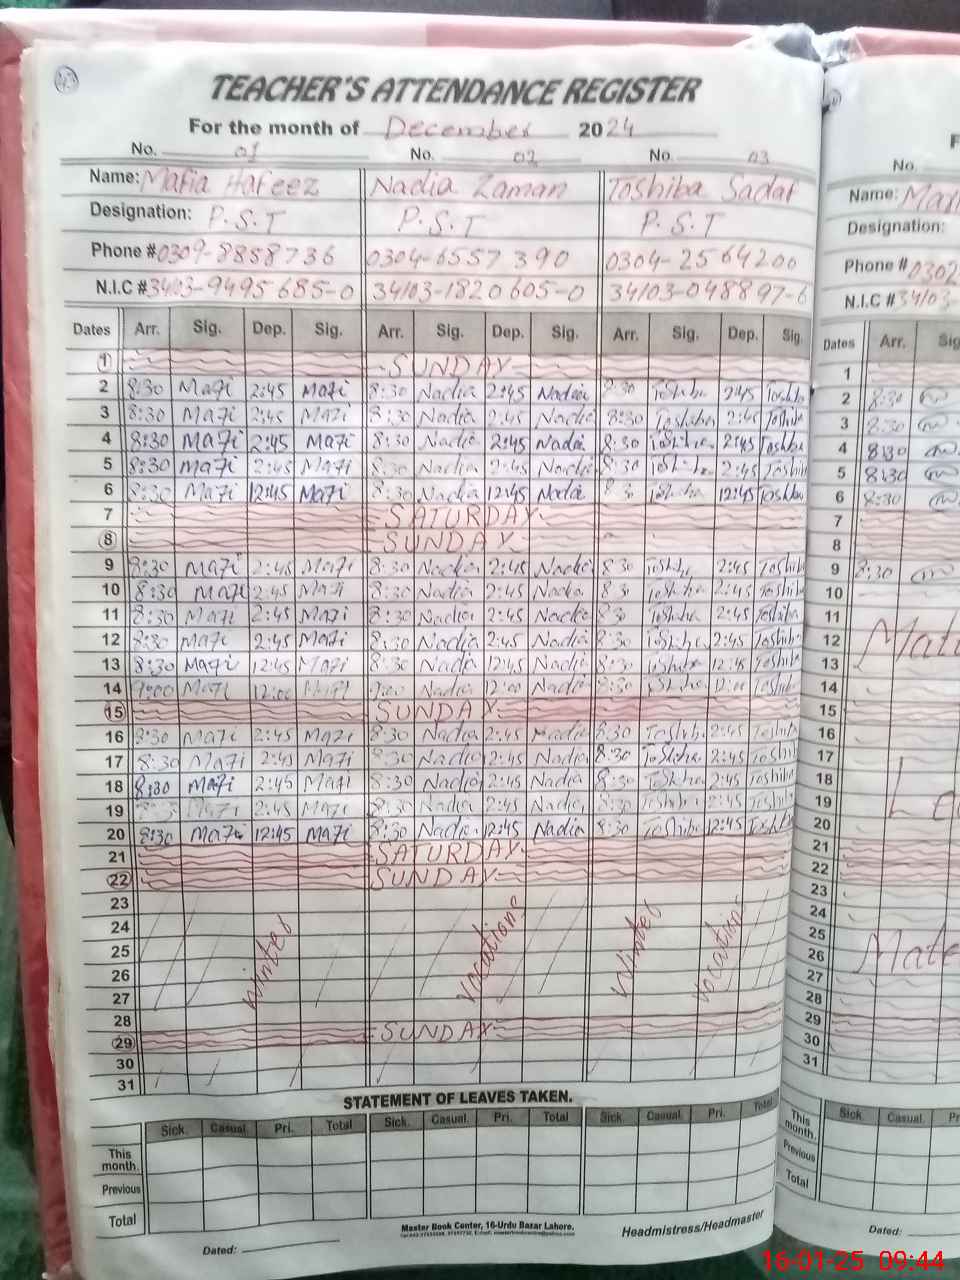 43
TEACHER'S ATTENDANCE REGISTER
For the month of December 2024
No. 01 No. 02 No. 03
Name: Mafia Hafeez Nadia Zaman Toshiba Sadat
Designation: P.S.T P.S.T P.S.T
Phone # 0309-8858736 0304-6557390 0304-2564200
N.I.C # 34103-9495685-0 34103-1820605-0 34103-048897-6
Dates Arr. Sig. Dep. Sig. Arr. Sig. Dep. Sig. Arr. Sig. Dep. Sig.
1 SUNDAY
2 8:30 Mafi 2:45 Mafi 8:30 Nadia 2:45 Nadia 8:30 Toshiba 2:45 Toshiba
3 8:30 Mafi 2:45 Mafi 8:30 Nadia 2:45 Nadia 8:30 Toshiba 2:45 Toshiba
4 8:30 Mafi 2:45 Mafi 8:30 Nadia 2:45 Nadia 8:30 Toshiba 2:45 Toshiba
5 8:30 Mafi 2:45 Mafi 8:30 Nadia 2:45 Nadia 8:30 Toshiba 2:45 Toshiba
6 8:30 Mafi 12:45 Mafi 8:30 Nadia 12:45 Nadia 8:30 Toshiba 12:45 Toshiba
7 SATURDAY
8 SUNDAY
9 8:30 Mafi 2:45 Mafi 8:30 Nadia 2:45 Nadia 8:30 Toshiba 2:45 Toshiba
10 8:30 Mafi 2:45 Mafi 8:30 Nadia 2:45 Nadia 8:30 Toshiba 2:45 Toshiba
11 8:30 Mafi 2:45 Mafi 8:30 Nadia 2:45 Nadia 8:30 Toshiba 2:45 Toshiba
12 8:30 Mafi 2:45 Mafi 8:30 Nadia 2:45 Nadia 8:30 Toshiba 2:45 Toshiba
13 8:30 Mafi 12:45 Mafi 8:30 Nadia 12:45 Nadia 8:30 Toshiba 12:45 Toshiba
14 9:00 Mafi 12:00 Mafi 9:00 Nadia 12:00 Nadia 8:30 Toshiba 12:00 Toshiba
15 SUNDAY
16 8:30 Mafi 2:45 Mafi 8:30 Nadia 2:45 Nadia 8:30 Toshiba 2:45 Toshiba
17 8:30 Mafi 2:45 Mafi 8:30 Nadia 2:45 Nadia 8:30 Toshiba 2:45 Toshiba
18 8:30 Mafi 2:45 Mafi 8:30 Nadia 2:45 Nadia 8:30 Toshiba 2:45 Toshiba
19 8:30 Mafi 2:45 Mafi 8:30 Nadia 2:45 Nadia 8:30 Toshiba 2:45 Toshiba
20 8:30 Mafi 12:45 Mafi 8:30 Nadia 12:45 Nadia 8:30 Toshiba 12:45 Toshiba
21 SATURDAY
22 SUNDAY
23
24
25 winter vacations winter vacation
26
27
28
29 SUNDAY
30
31
STATEMENT OF LEAVES TAKEN.
Sick. Casual. Pri. Total Sick. Casual. Pri. Total Sick. Casual. Pri. Total
This month.
Previous
Total
Master Book Center, 16-Urdu Bazar Lahore.
Headmistress/Headmaster
Dated:
No.
Name:
Designation:
Phone # 0302
N.I.C # 34103
Dates Arr. Sig
1
2 8:30
3 8:30
4 8:30
5 8:30
6 8:30
7
8
9 8:30
10
11
12
13
14
15
16
17
18
19
20
21
22
23
24
25
26
27
28
29
30
31
Sick. Casual.
This month.
Previous
Total
Dated:
16-01-25 09:44